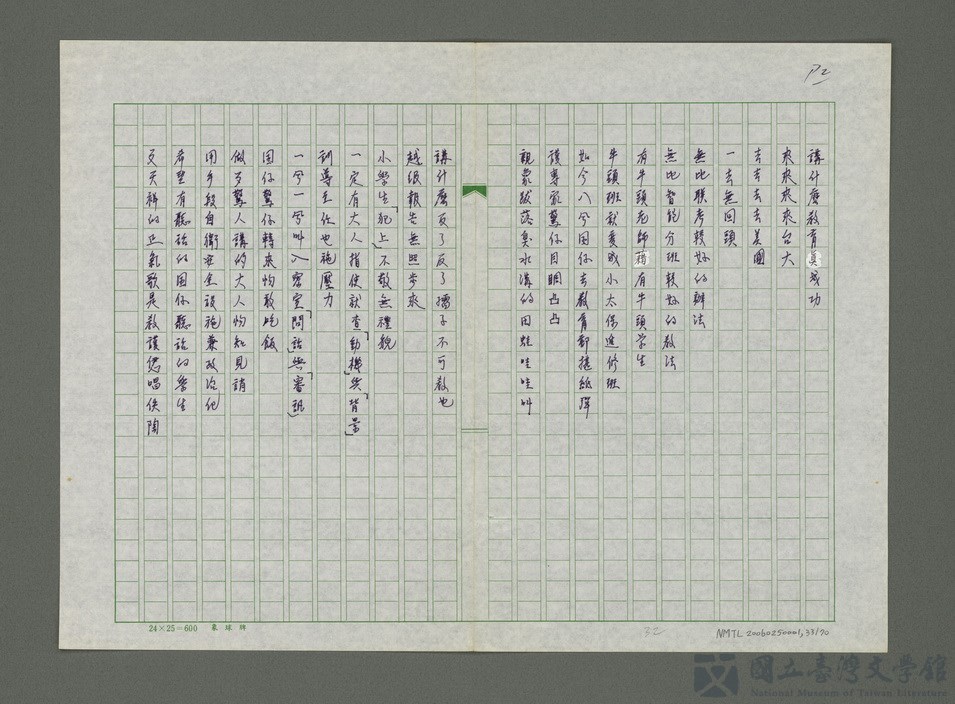 P2
講什麼教育真成功
來來來來台大
去去去去美國
一去無回頭
無比聯考較好的辦法
無比智能分班較好的教法
有牛頭老師著有牛頭學生
牛頭班就變成小太保進修班
如今八兮囡仔去教育部擲紙彈
讀專家驚仔目睭凸凸
親像跋落臭水溝的田蛙哇哇叫
講什麼反了反了孺子不可教也
越級報告無照步來
小學生「犯上」不敬無禮貌
一定有大人指使就查「動機」與「背景」
訓導主任也施壓力
一兮一兮叫入密室「問話」與「審訊」
囡仔驚仔轉來怕敢吃飯
做歹驚人講的大人怕記見誚
用手段自衛在坐設施兼政治犯
希望有聽話的囡仔聽話的學生
文天祥的正氣歌是教讀僫唱佚陶
24×25=600
32
NMTL 20060250001,33/70
國立臺灣文學館
National Museum of Taiwan Literature